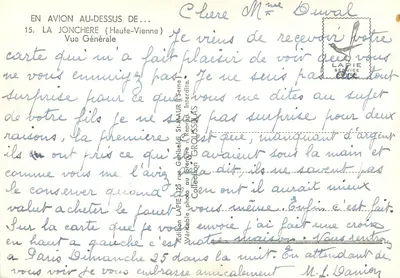 EN AVION AU-DESSUS DE...
15. LA JONCHERE (Haute-Vienne)
Vue Générale
LAPIE
Chere Mme Duval
Je viens de recevoir votre
carte qui m'a fait plaisir de voir que vous
ne vous ennuyez pas Je ne suis pas du tout
surprise pour ce que vous me dites au sujet
de votre fils je ne suis pas surprise pour deux
raisons, la première est que, manquant d'argent
ils ont pris ce qu'ils avaient sous la main et
comme vous me l'avez dit, ils ne savent pas
le conserver quand en ont il aurait mieux
valut acheter le jouet vous même. Enfin c'est fait.
Sur la carte que je vous envoie j'ai fait une croix
en haut a gauche c'est notre maison. Nous
a Paris Dimanche 25 dans la nuit. En attendant de
vous voir Je vous embrasse amicalement M. L.
Edition LAPIE